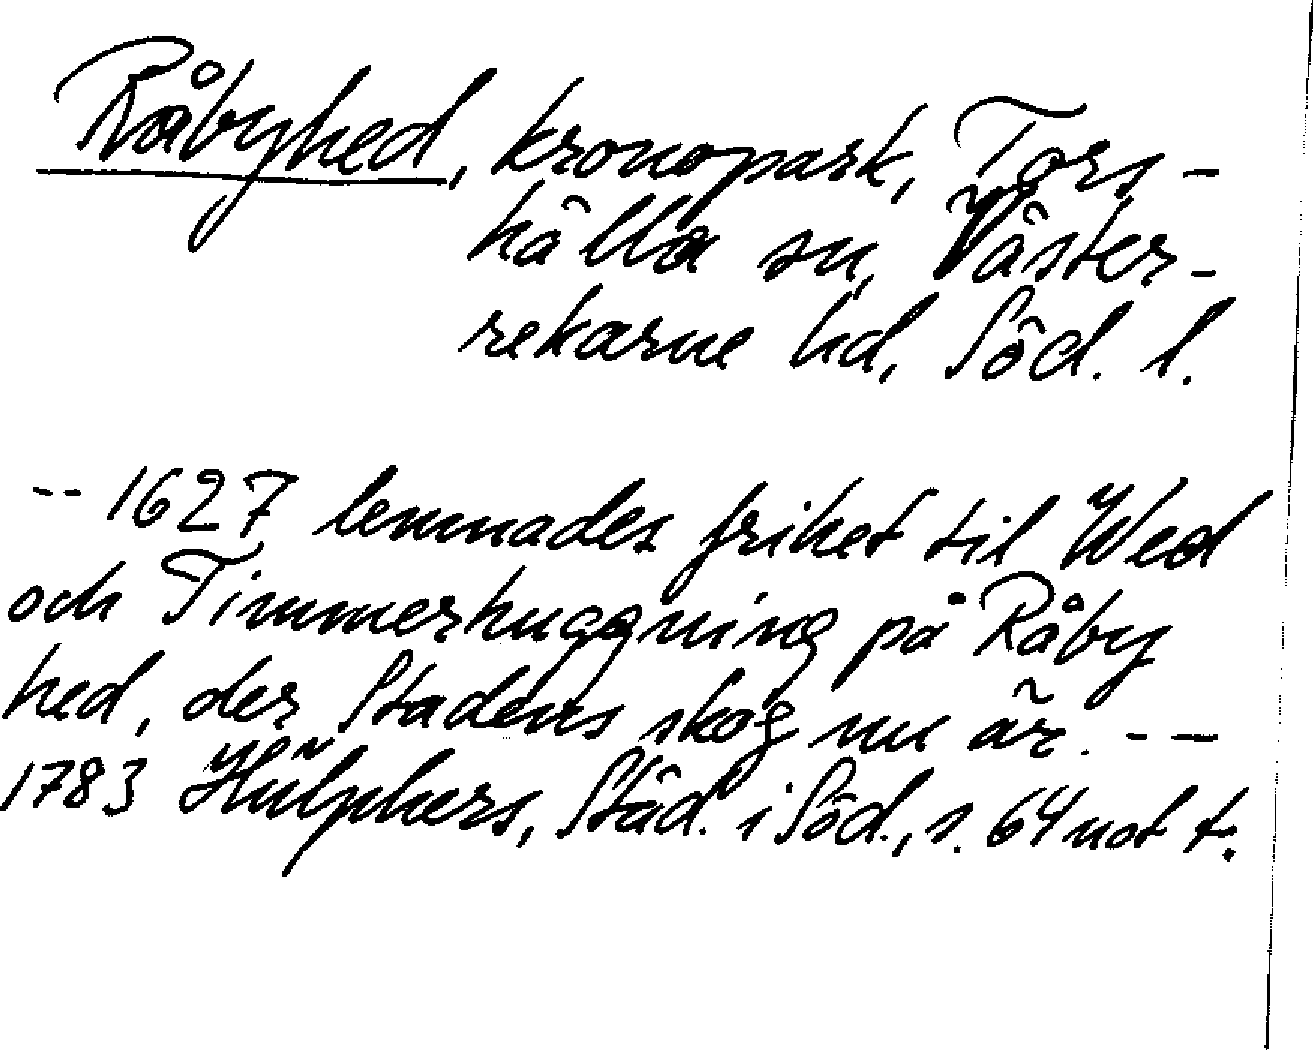 Råbyhed, kronopark, Tors-
hälla sn, Väster-
rekarne hd, Söd. l.
-- 1627 lemnades frihet til Wed
och Timmerhuggning på Råby
hed, der Stadens skog nu är. --
1783 Hülphers, Städ. i Söd., s. 64 not t.